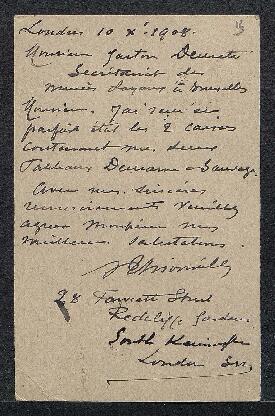 Londres 10 Xbre 1908.
Monsieur Gaston
Secrétariat des
Musées Royaux à Bruxelles
Monsieur. J'ai reçu en
parfait état les 2 caisses
contenant mes deux
Tableaux
Avec mes sincères
remerciements Veuillez
agréer Monsieur mes
meilleures salutations.
28 Fawcett Street
Redcliffe Gardens
South Kensington
London SW.